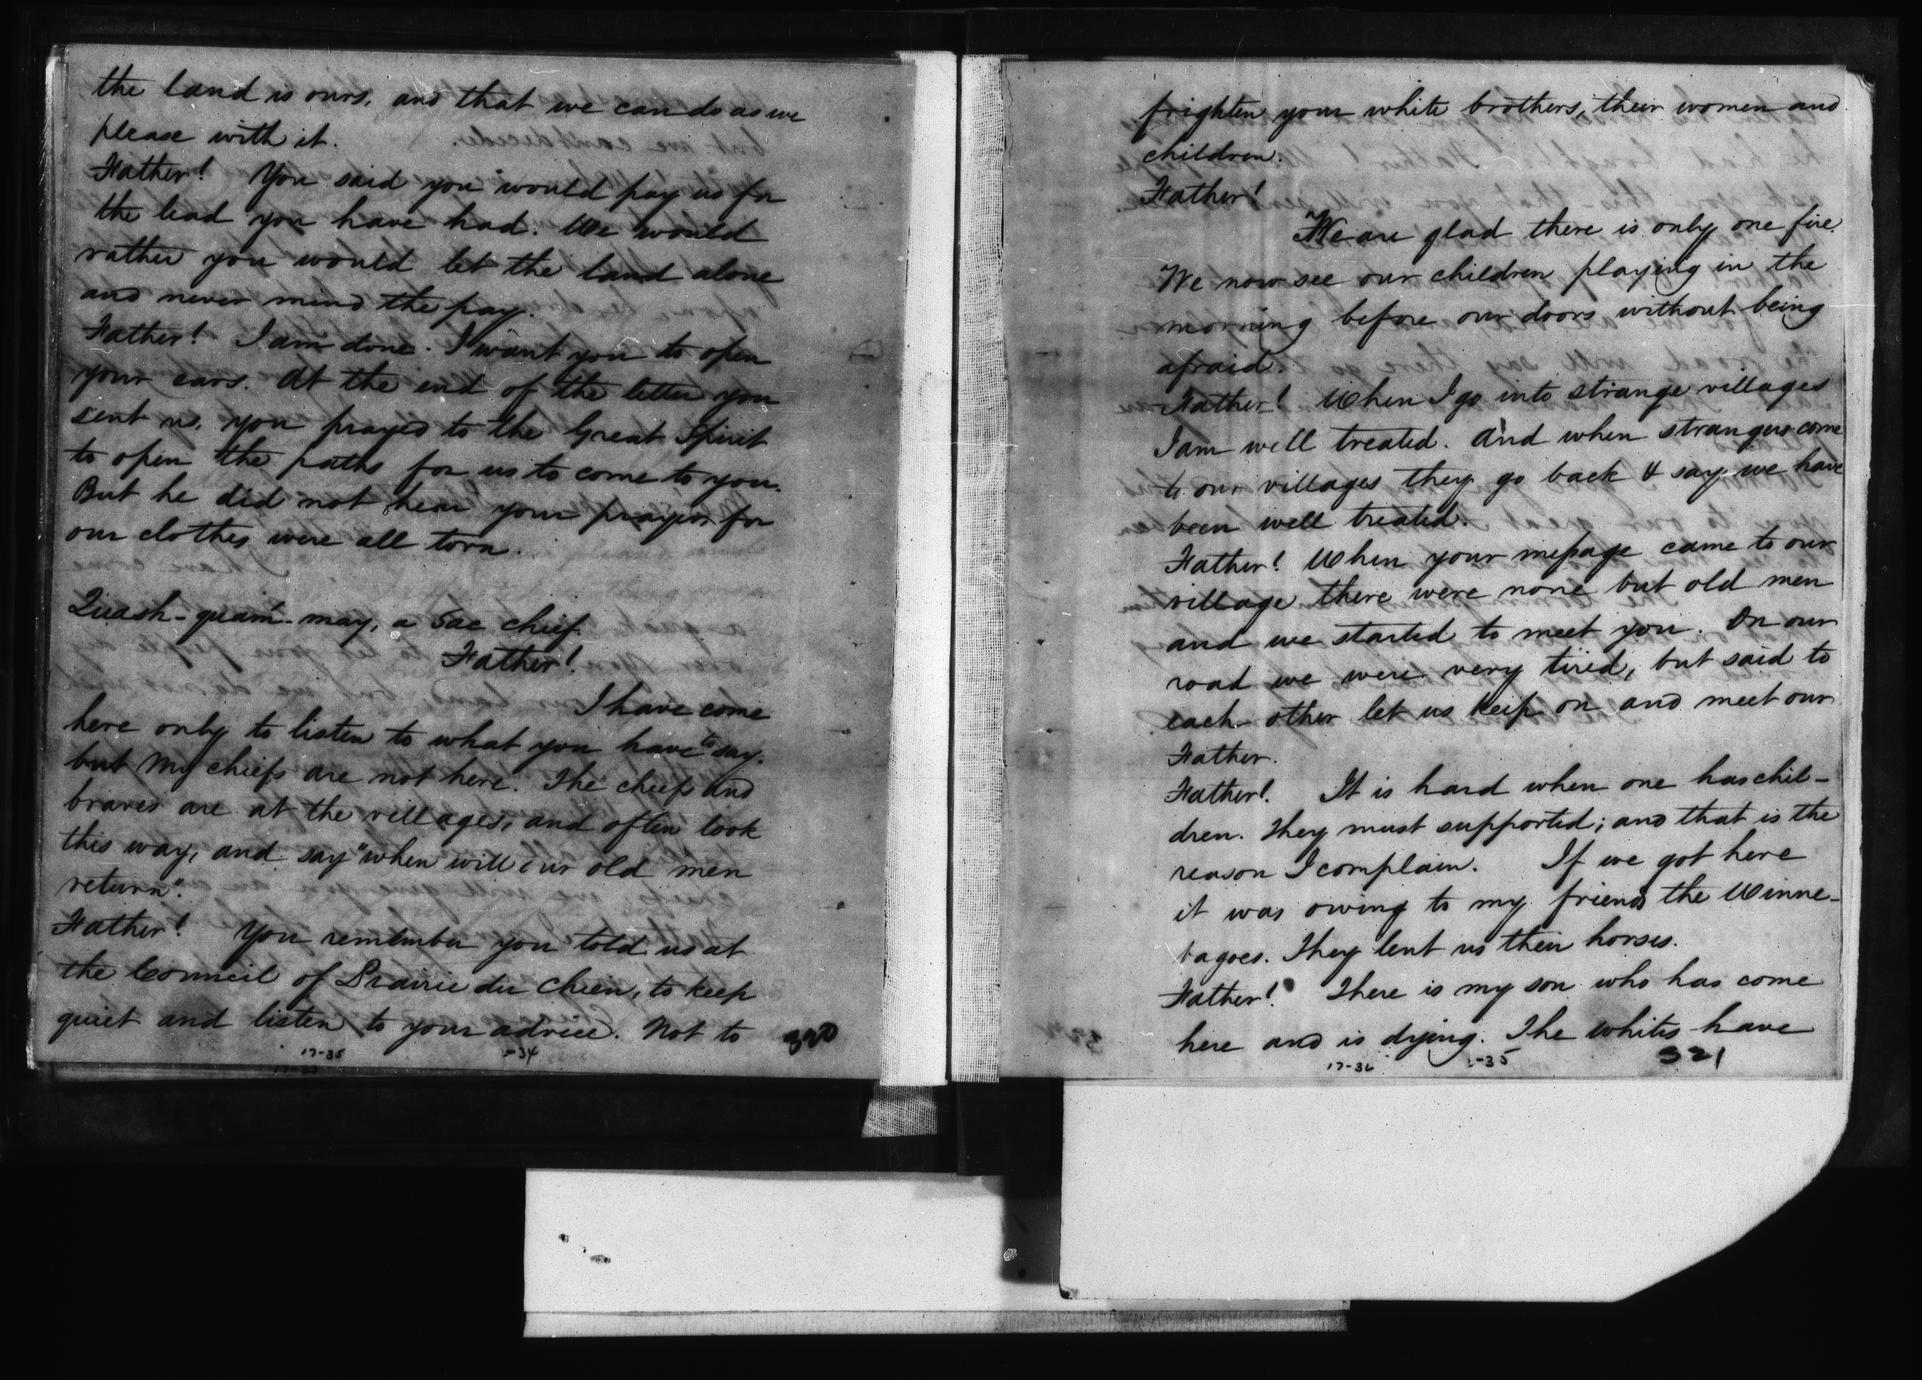 the land is ours, and that we can do as we
please with it.
Father! You said you would pay us for
the lead you have had. We would
rather you would let the land alone
and never mind the pay.
Father! I am done. I want you to open
your ears. At the end of the letter you
sent us, you prayed to the Great Spirit
to open the paths for us to come to you.
But he did not hear your prayer, for
our clothes were all torn.
Quash-quam-may, a Sac chief.
Father!
I have come
here only to listen to what you have to say.
but my chiefs are not here. The chiefs and
braves are at the villages, and often look
this way, and say "when will our old men
return".
Father! You remember you told us at
the Council of Prairie du Chien, to keep
quiet and listen to your advice. Not to
320
17-35
-34
frighten your white brothers, their women and
children.
Father!
We are glad there is only one fire.
We now see our children playing in the
morning before our doors without being
afraid.
Father! When I go into strange villages
I am well treated. And when strangers come
to our villages they go back & say we have
been well treated.
Father! When your message came to our
village there were none but old men
and we started to meet you. On our
road we were very tired, but said to
each other let us keep on and meet our
Father.
Father! It is hard when one has chil-
dren. They must supported; and that is the
reason I complain. If we got here
it was owing to my friends the Winne-
bagoes. They lent us their horses.
Father! There is my son who has come
here and is dying. The whites have
321
17-36
-35